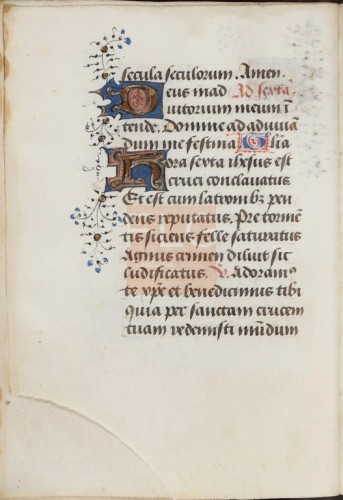 secula seculorum. Amen
Deus in ad Ad sexta
iutorium meum in
tende. Domine ad adiuuā
dum me festina Glīa
Hora sexta ihesus est
cruci conclauatus
Et est cum latronibz pen
dens reputatus, Pre tormē
tis siciens felle saturatus
Agnus crimen diluit sic
ludificatus. V. Adoramꝰ
te xpē et benedicimus tibi
quia per sanctam crucem
tuam redemisti mūdum